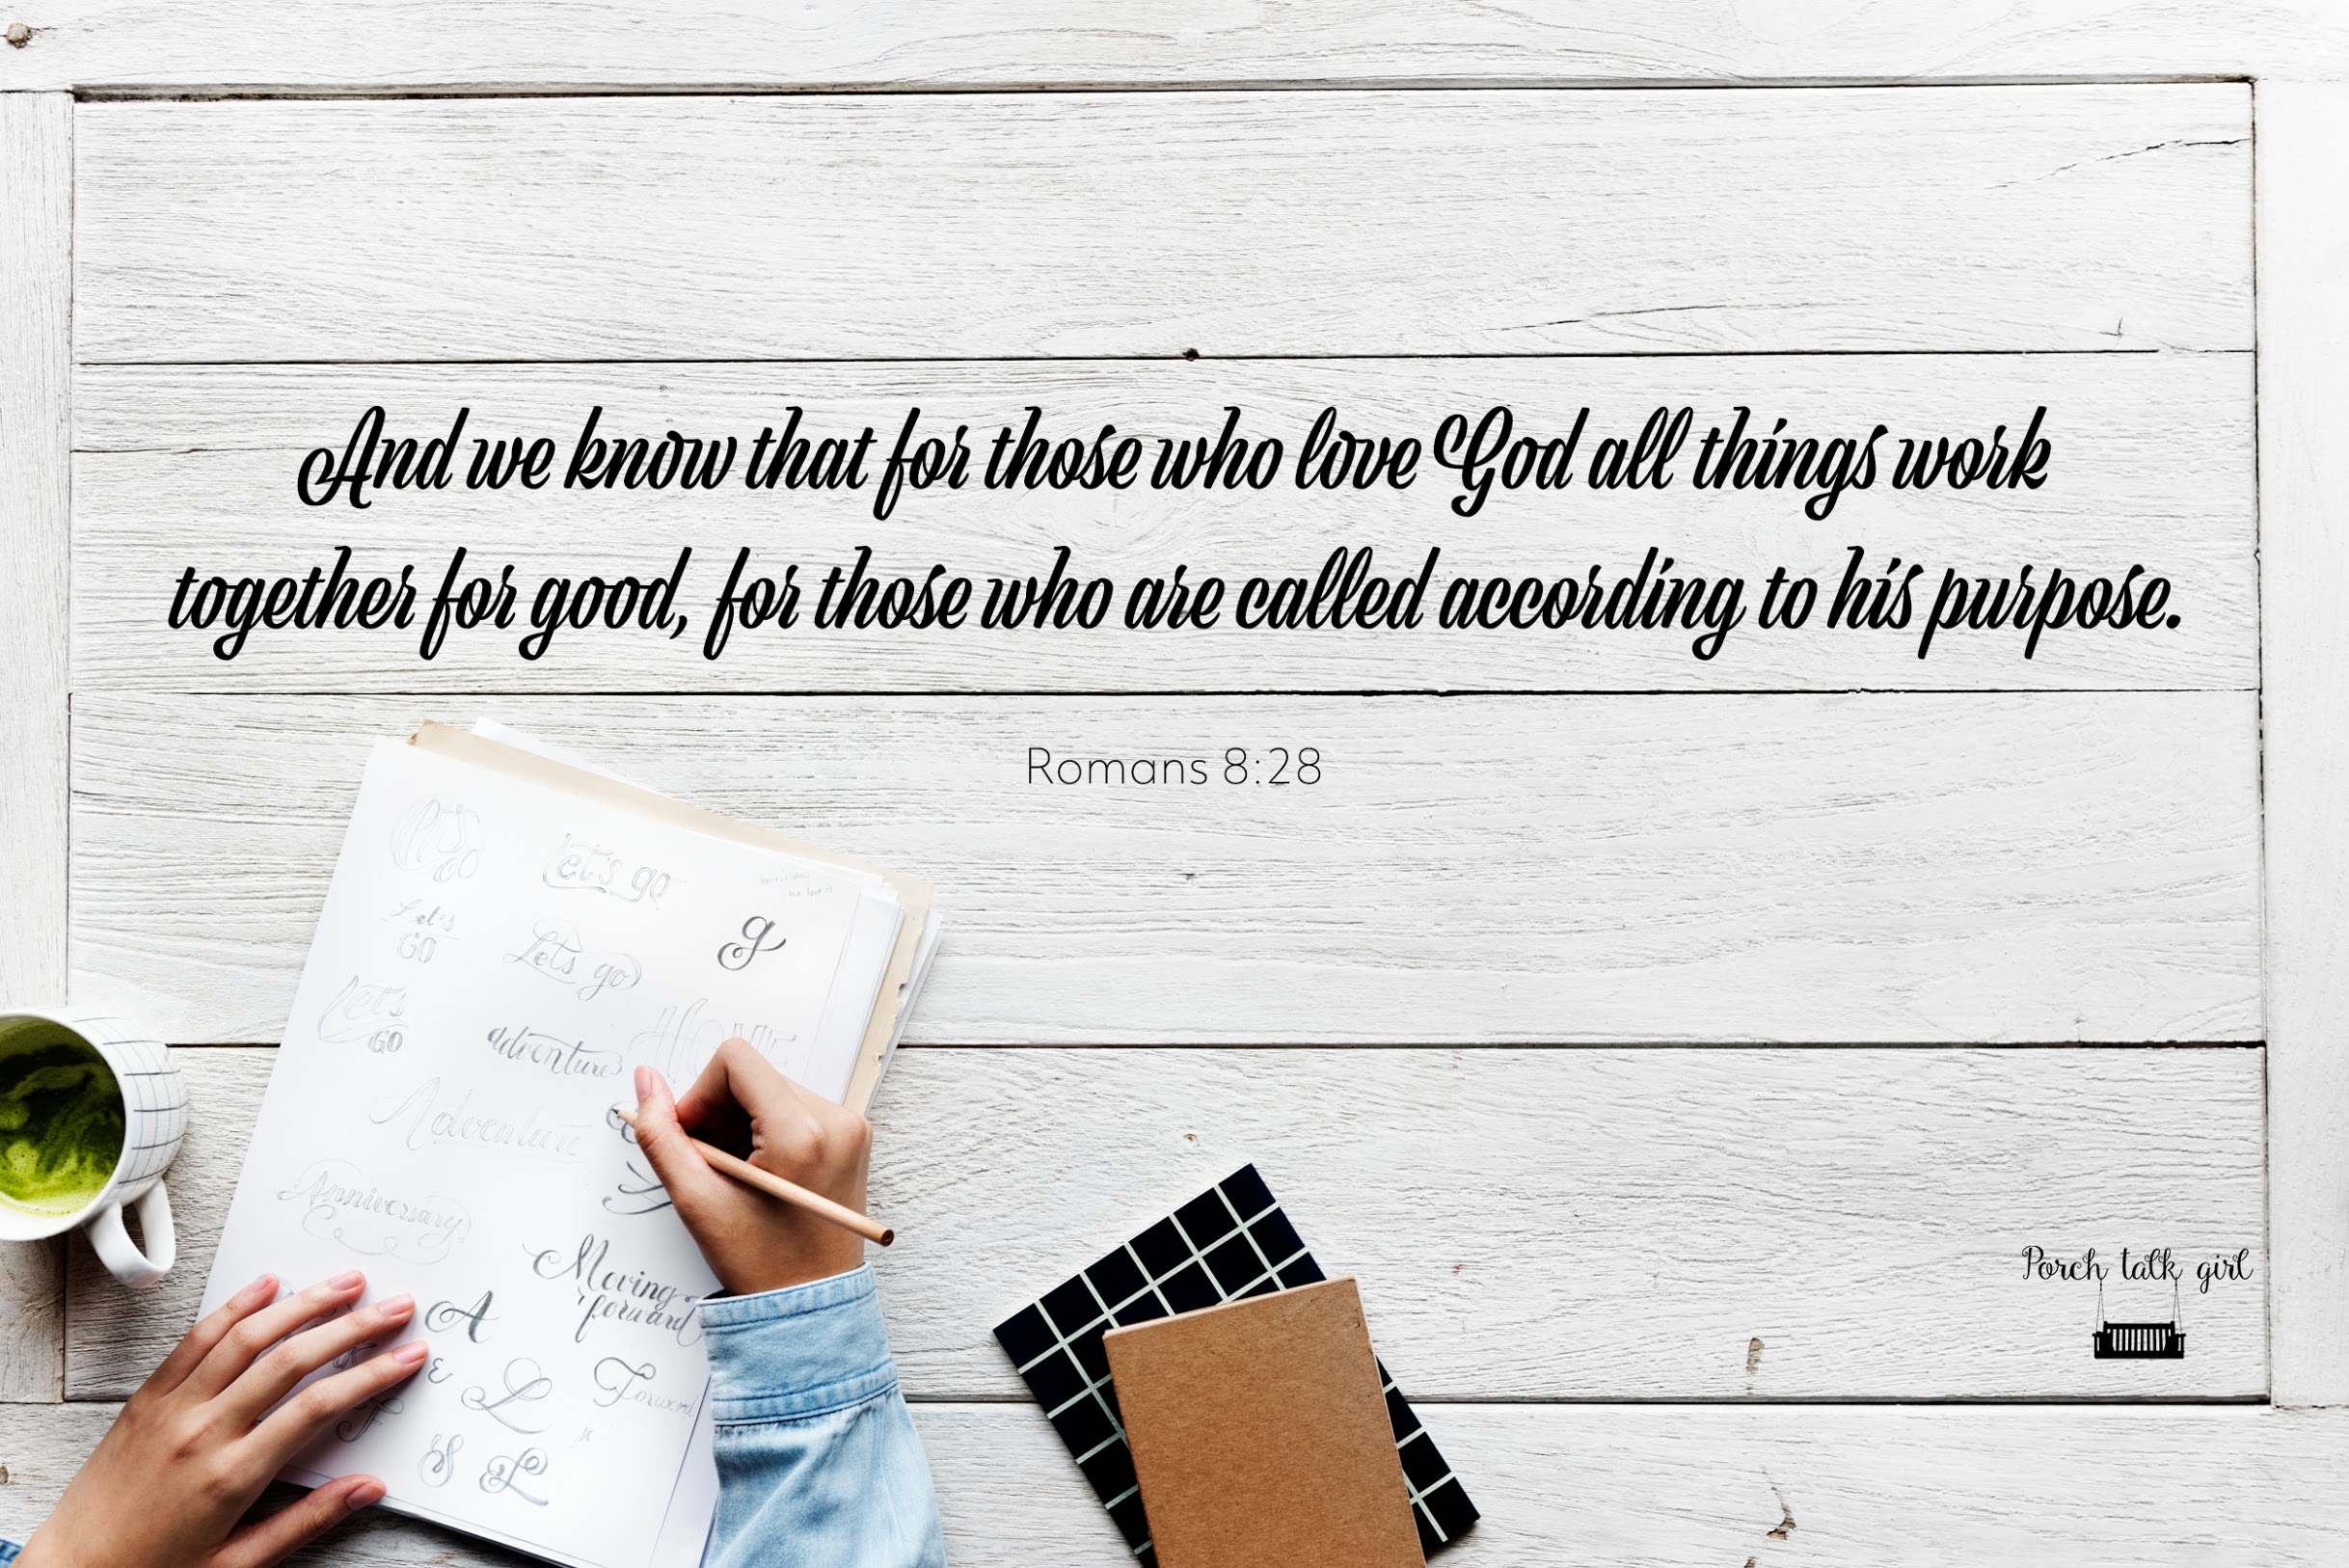 And we know that for those who love God all things work
together for good, for those who are called according to his purpose.
Romans 8:28
Let's go
g
Let's
GO
Lets go
Let's
GO
HOME
adventure
Adventure
Anniversary
Moving
forward
A
E
L
Forward
F
S
L
Porch talk girl